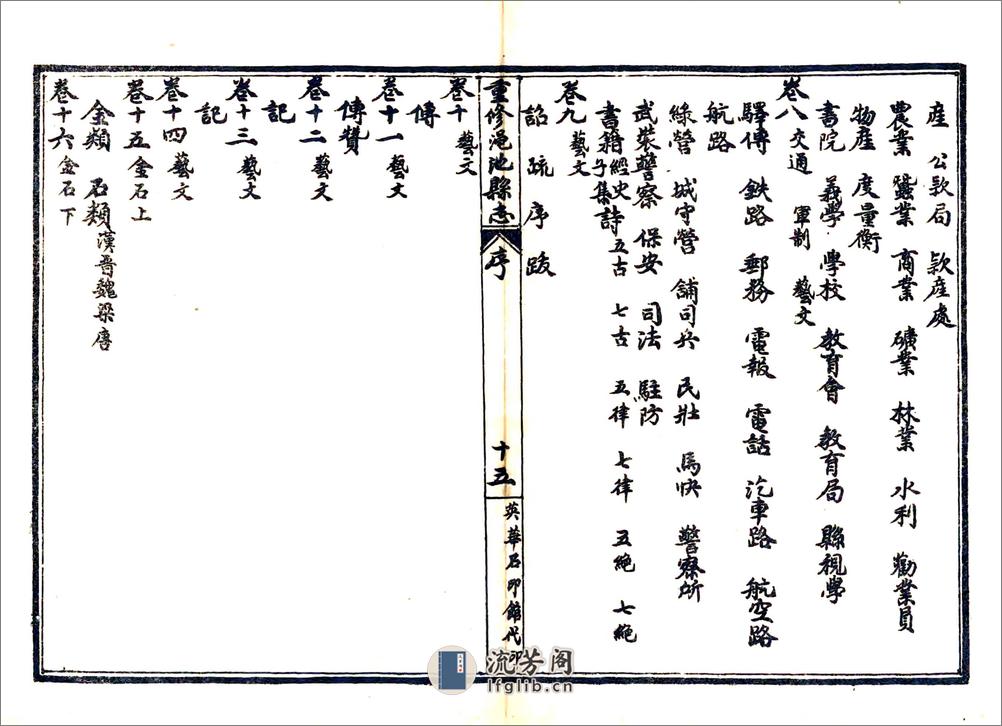 產 公款局 款產處
農業 蠶業 商業 礦業 林業 水利 勸業員
物產 度量衡
書院 義學 學校 教育會 教育局 縣視學
卷八 交通 軍制 藝文
驛傳 鉄路 郵務 電報 電話 汽車路 航空路
航路
綠營 城守營 舖司兵 民壯 馬快 警察所
武裝警察 保安 司法 駐防
書籍 經史子集 詩 五古 七古 五律 七律 五絕 七絕
卷九 藝文
詔 疏 序 跋
重修澠池縣志 序 十五 英華石印館代印
卷十 藝文
傳
卷十一 藝文
傳贊
卷十二 藝文
記
卷十三 藝文
記
卷十四 藝文
卷十五 金石上
金類 石類 漢晉魏梁唐
卷十六 金石下
流芳阁
lfglib.cn